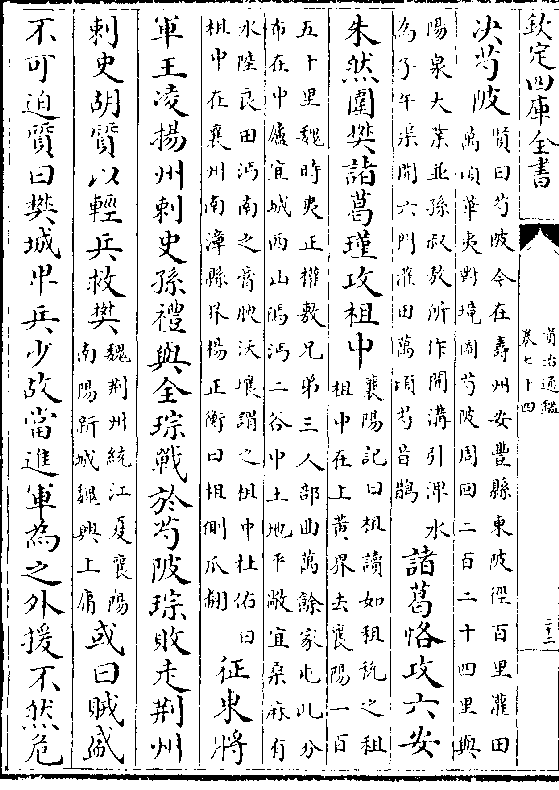 欽定四庫全書
資治通鑑
卷七十四
三十三
決芍陂
賢曰芍陂今在壽州安豐縣東陂徑百里灌田
萬頃華夷對境圖芍陂周回二百二十四里與
陽泉大業並孫叔敖所作開溝引淠水
為子午渠開六門灌田萬頃芍音鵲
諸葛恪攻六安
朱然圍樊諸葛瑾攻柤中
襄陽記曰柤讀如租稅之租
柤中在上黃界去襄陽一百
五十里魏時夷王梅敷兄弟三人部曲萬餘家屯此分
布在中廬宜城西山鄢沔二谷中土地平敞宜桑麻有
水陸良田沔南之膏腴沃壤謂之柤中杜佑曰
柤中在襄州南漳縣界楊正衡曰柤側瓜翻
征東將
軍王凌揚州刺史孫禮與全琮戰於芍陂琮敗走荆州
刺史胡質以輕兵救樊
魏荆州統江夏襄陽
南陽新城魏興上庸
或曰賊盛
不可迫質曰樊城卑兵少故當進軍為之外援不然危